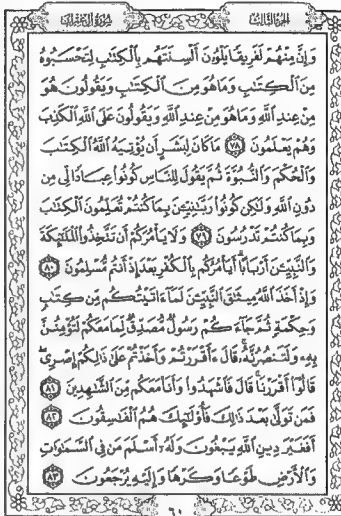 الجزء الثالث سورة آل عمران
وَإِنَّ مِنْهُمْ لَفَرِيقًا يَلْوُۥنَ أَلْسِنَتَهُم بِالْكِتَٰبِ لِتَحْسَبُوهُ
مِنَ الْكِتَٰبِ وَمَا هُوَ مِنَ الْكِتَٰبِ وَيَقُولُونَ هُوَ
مِنْ عِندِ اللَّهِ وَمَا هُوَ مِنْ عِندِ اللَّهِ وَيَقُولُونَ عَلَى اللَّهِ الْكَذِبَ
وَهُمْ يَعْلَمُونَ ٧٨ مَا كَانَ لِبَشَرٍ أَن يُؤْتِيَهُ اللَّهُ الْكِتَٰبَ
وَالْحُكْمَ وَالنُّبُوَّةَ ثُمَّ يَقُولَ لِلنَّاسِ كُونُوا عِبَادًا لِّي مِن
دُونِ اللَّهِ وَلَٰكِن كُونُوا رَبَّٰنِيِّۦنَ بِمَا كُنتُمْ تُعَلِّمُونَ الْكِتَٰبَ
وَبِمَا كُنتُمْ تَدْرُسُونَ ٧٩ وَلَا يَأْمُرَكُمْ أَن تَتَّخِذُوا الْمَلَٰٓئِكَةَ
وَالنَّبِيِّۦنَ أَرْبَابًا أَيَأْمُرُكُم بِالْكُفْرِ بَعْدَ إِذْ أَنتُم مُّسْلِمُونَ ٨٠
وَإِذْ أَخَذَ اللَّهُ مِيثَٰقَ النَّبِيِّۦنَ لَمَآ ءَاتَيْتُكُم مِّن كِتَٰبٍ
وَحِكْمَةٍ ثُمَّ جَآءَكُمْ رَسُولٌ مُّصَدِّقٌ لِّمَا مَعَكُمْ لَتُؤْمِنُنَّ
بِهِۦ وَلَتَنصُرُنَّهُۥ قَالَ ءَأَقْرَرْتُمْ وَأَخَذْتُمْ عَلَىٰ ذَٰلِكُمْ إِصْرِي
قَالُوٓا أَقْرَرْنَا قَالَ فَاشْهَدُوا وَأَنَا۠ مَعَكُم مِّنَ الشَّٰهِدِينَ ٨١
فَمَن تَوَلَّىٰ بَعْدَ ذَٰلِكَ فَأُولَٰٓئِكَ هُمُ الْفَٰسِقُونَ ٨٢
أَفَغَيْرَ دِينِ اللَّهِ يَبْغُونَ وَلَهُۥٓ أَسْلَمَ مَن فِي السَّمَٰوَٰتِ
وَالْأَرْضِ طَوْعًا وَكَرْهًا وَإِلَيْهِ يُرْجَعُونَ ٨٣